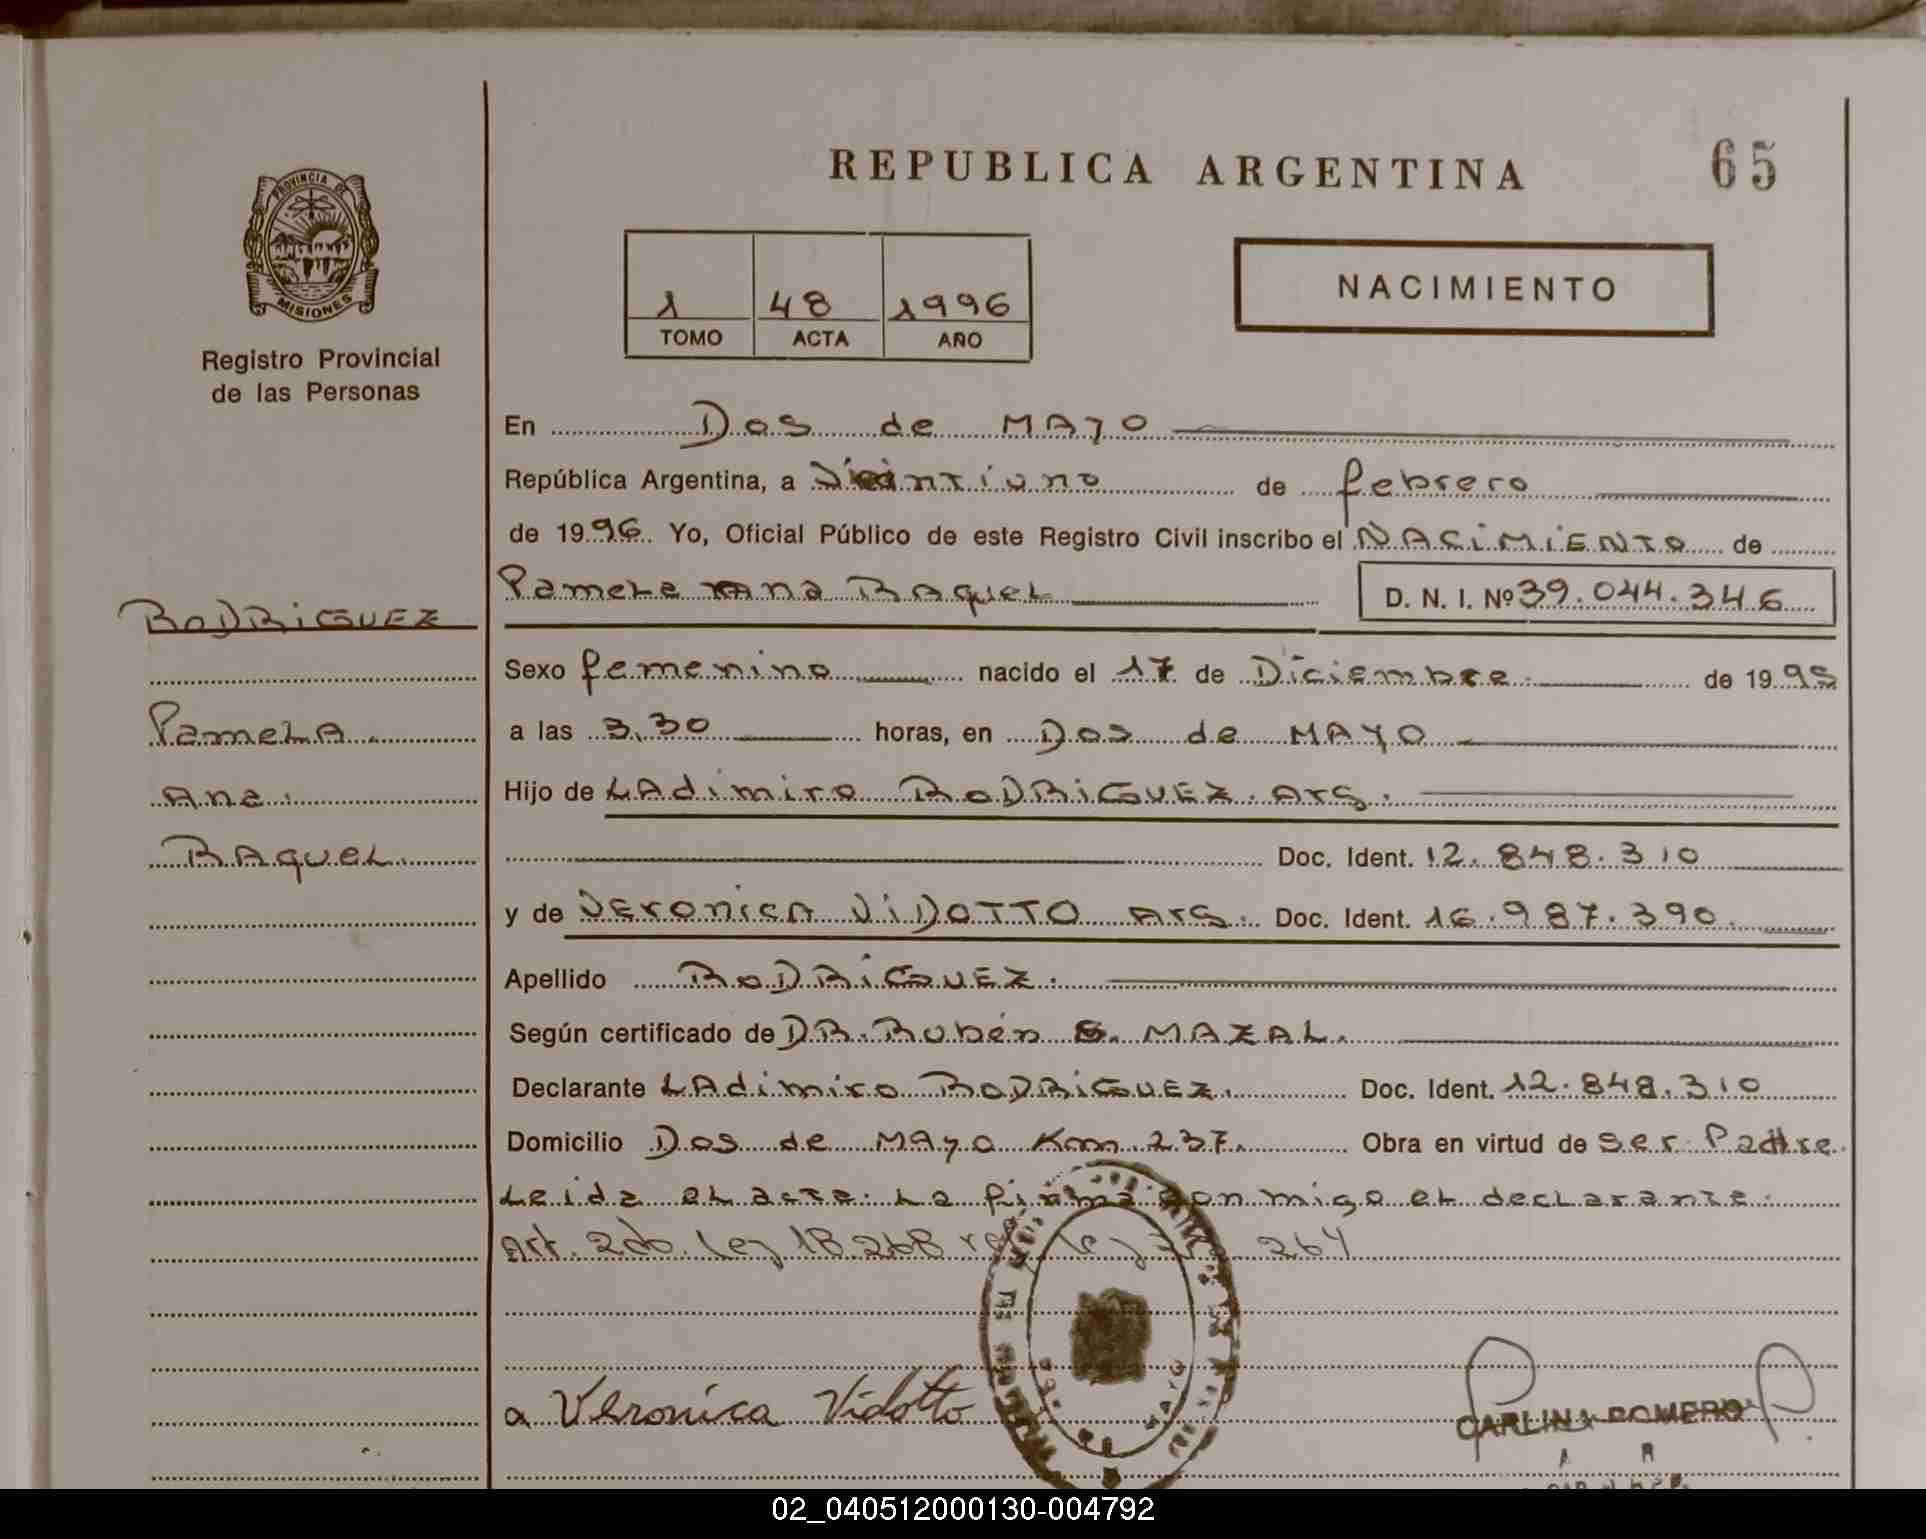 REPUBLICA ARGENTINA
65
PROVINCIA DE
MISIONES
Registro Provincial
de las Personas
1 48 1996
TOMO ACTA AÑO
NACIMIENTO
En Dos de MAYO
República Argentina, a Veintiuno de febrero
de 1996. Yo, Oficial Público de este Registro Civil inscribo el NACIMIENTO de
Pamela Ana RAquel D. N. I. Nº 39.044.346
RODRIGUEZ
Sexo femenino nacido el 17 de Diciembre de 1995
PameLA
a las 3.30 horas, en Dos de MAYO
Ana
Hijo de LAdimiro RODRiGUEZ. Arg.
RAqueL
Doc. Ident. 12.848.310
y de VeronicA ViDOTTO Arg. Doc. Ident. 16.987.390.
Apellido RODRiGUEZ.
Según certificado de DR. Rubén MAZAL.
Declarante LAdimiro RODRiGUEZ. Doc. Ident. 12.848.310
Domicilio Dos de MAyo Km 237. Obra en virtud de ser Padre.
Leida el acta. La firma conmigo el declarante.
Art. 2do. ley 18268 ley 264
a Veronica Vidotto
CARLINA ROMERO
02_040512000130-004792